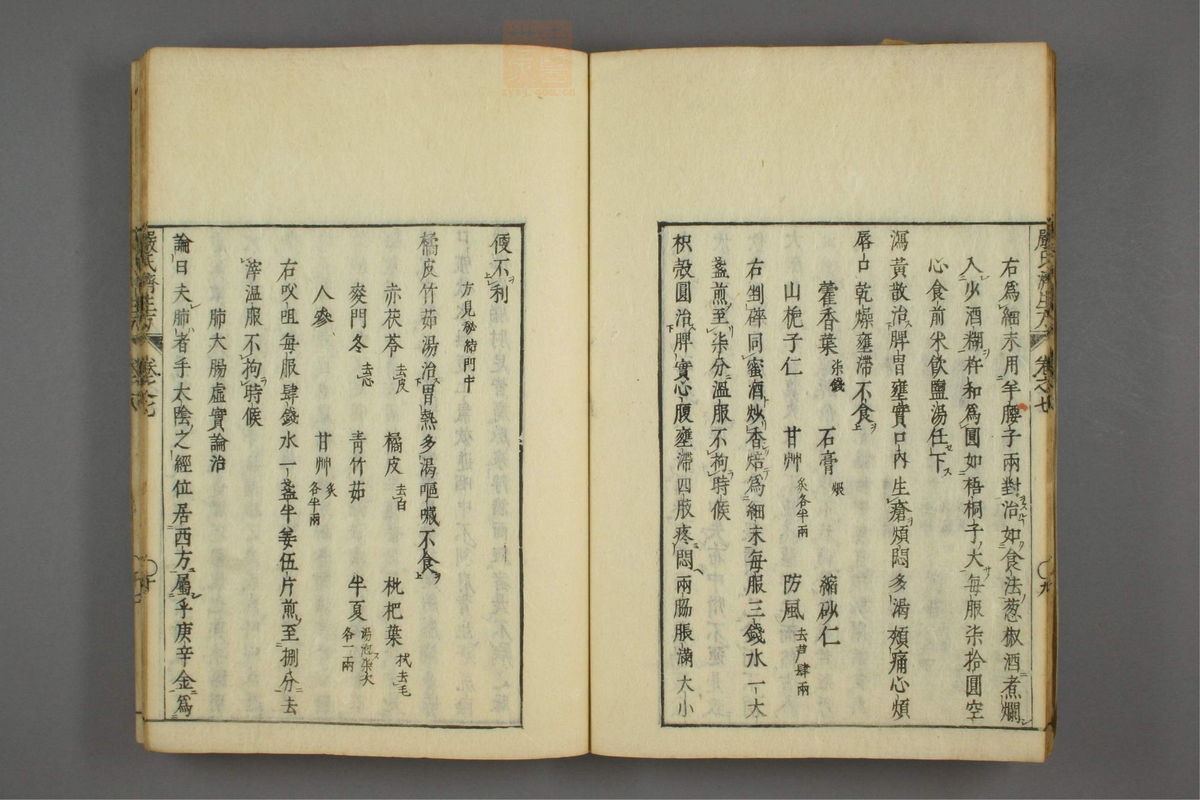 右爲細末用羊腰子兩對治如食法葱椒酒煮爛
入少酒糊杵和爲圓如梧桐子大每服柒拾圓空
心食前米飲鹽湯任下
瀉黃散治脾胃壅實口内生瘡煩悶多渴頰痛心煩
唇口乾燥壅滯不食
藿香葉柒錢 石膏煅 縮砂仁
山梔子仁 甘艸炙各半兩 防風去芦肆兩
右剉碎同蜜酒炒香焙爲細末每服三錢水一大
盞煎至柒分溫服不拘時候
枳殼圓治脾實心腹壅滯四肢疼悶兩脇脹滿大小
便不利
方見秘結門中
橘皮竹茹湯治胃熱多渴嘔噦不食
赤茯苓去皮 橘皮去白 枇杷葉拭去毛
麥門冬去心 青竹茹 半夏湯泡柒次各一兩
人參 甘艸炙各半兩
右㕮咀每服肆錢水一盞半姜伍片煎至捌分去
滓溫服不拘時候
肺大腸虛實論治
論曰夫肺者手太陰之經位居西方屬乎庚辛金爲